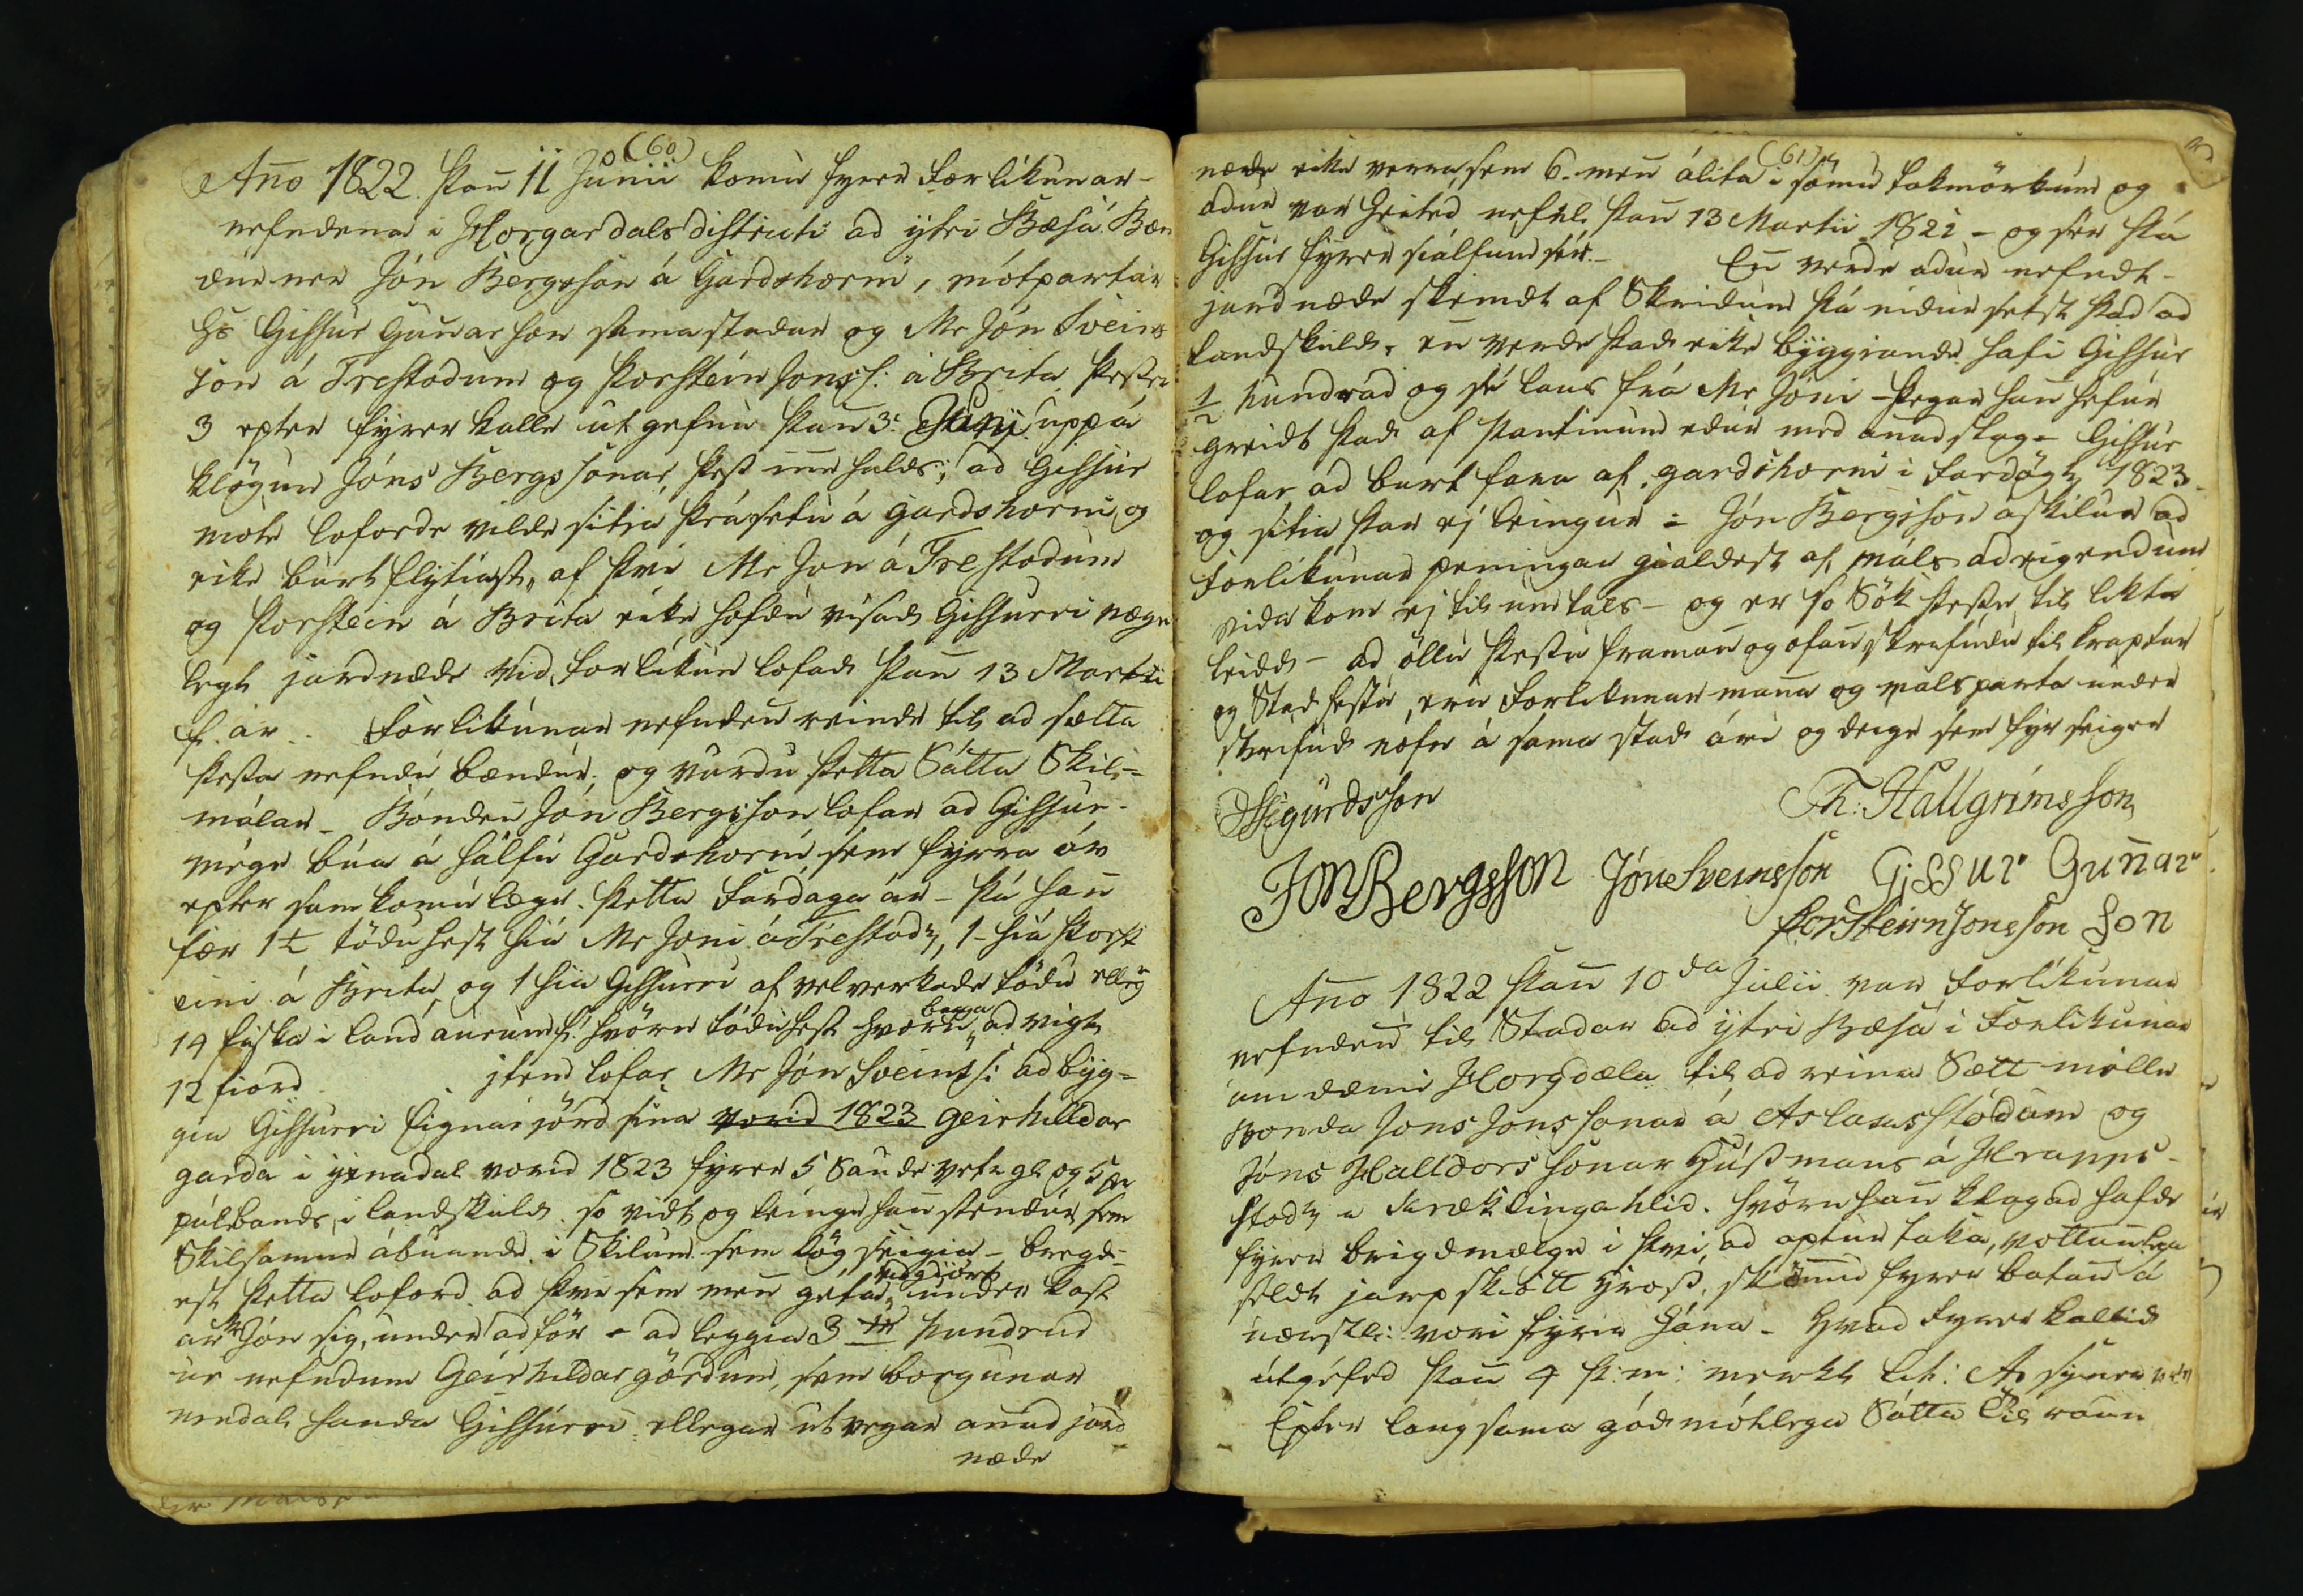 (60)
Ano 1822. þan 11 Júnii komu fyrer Forlikunar-
nefndena i Horgardals districti ad ytri Bæsá Bæn
dur ner Jón Bergsson á Gardshorni, mótpartar
hs Gissur Gunarson sama stadar og Mr Jón Sveins
son á Trestodum og Þorsteirn Jonss: á Brita þesser
3 epter fyrer kalle utgefnu þan 3: Junij uppá
klögun Jóns Bergssonar þess inehalds; ad Gissur
mote loforde vilde sitia þrásetu á Gardshorni og
eike burt flytiast, af þvi Mr Jon á Trestodum
og Þorstein á Brita eike hofdu visad Gissurri næge
legt jardnæde vid forlikun lofad þan 13 Martii
f. ár. Forlikunar nefnden reinde til ad sætta
þessa nefndu bændur, og vurdu þetta Sátta Skil-
málar - Bonden Jón Bergsson lofar ad Gissur
mege búa á hálfu Gardshorni sem fyrra ár
epter samkomulage. þetta Fardaga ár - þá han
fær 1½ tödu hest hiá Mr Joni á Trestod, 1 - hiá Þorst
eini á Brita og 1 hiá Gissurri af velverkade tödu elleg
14 fiska i landaurum f: hvorn töduhest hvorn bera ad vigt
12 fiord. item lofar Mr Jón Sveinss: ad byg-
gia Gissurri Eignar jörd sina vorid 1823 Geirhilldar
garda i yxnadal vorid 1823 fyrer 5 Saude vetrgl og 5
pulbands i landskuld so vidt og leinge han stendur sem
Skilsamur ábuande i Skilum sem lög seigia - bregd-
est þetta loford ad þvi sem men géta vidgiört under kast
ar Jón sig, under adför - ad leggia 3 hundrud
úr nefndum Geirhildargördum, sem borgunar
handa Gissurri ellegar utvegar anad jard
næde
(61)
næde eike verra, sem 6. men álita i sömu takmörkum og
adur var heited nefnl þan 13 Martii 1821 - og sér þá
Gissur fyrer sialfum sér. - En verde adur nefndt-
jardnæde skémdt af Skridum þá nidur setst þad ad
landskuld. en verde þad eike byggiande hafi Gissur
½ hundrad og sé laus frá Mr Jóni - þegar han hefur
greidt þad af partinum edur med anad slag - Gissur
lofar ad burt fara af Gardshorni i Fardög 1823
og sitia þar ej leingur - Jón Bergsson áskilur ad
Forlikunar peningar gialdest af máls adeigendum
vida kom ej til umtals - og er so Sök þesse til likta
leidd - ad öllu þessu framan og ofan skrifudu til kraptar
og Stadfestu, eru Forlikunar mana og málsparta under
skrifud nöfn á sama stad ári og deige sem fyr seiger
Sigurdsson Th: Hallgrímsson
Jon Bergsson Jón Sveinsson Gissur Gunar
Þorsteirn Jonsson Son
Ano 1822 þan 10da Julii var Forlikunar
nefnden til Stadar ad ytri Bæsá i Forlikunar
um dæmi Horgdæla til ad reina Sætt mille
Bonda Jons Jonssonar á Aslaksstödum og
Jóns Halldorssonar Húsmans á Hrapps-
stod á Kræklingahlid. hvörn han klagad hafde
fyrer brigdmælge i þvi, ad aptur taka, vottanlega
seldt jarpskiótt hross, skömu fyrer batan á
næstl: vori fyrir hána - Hvad Fyrerkallid
útgéfed þan 4 þ: m: merkt Lit: A
Epter langsama gódmótlega Sátta Til raun